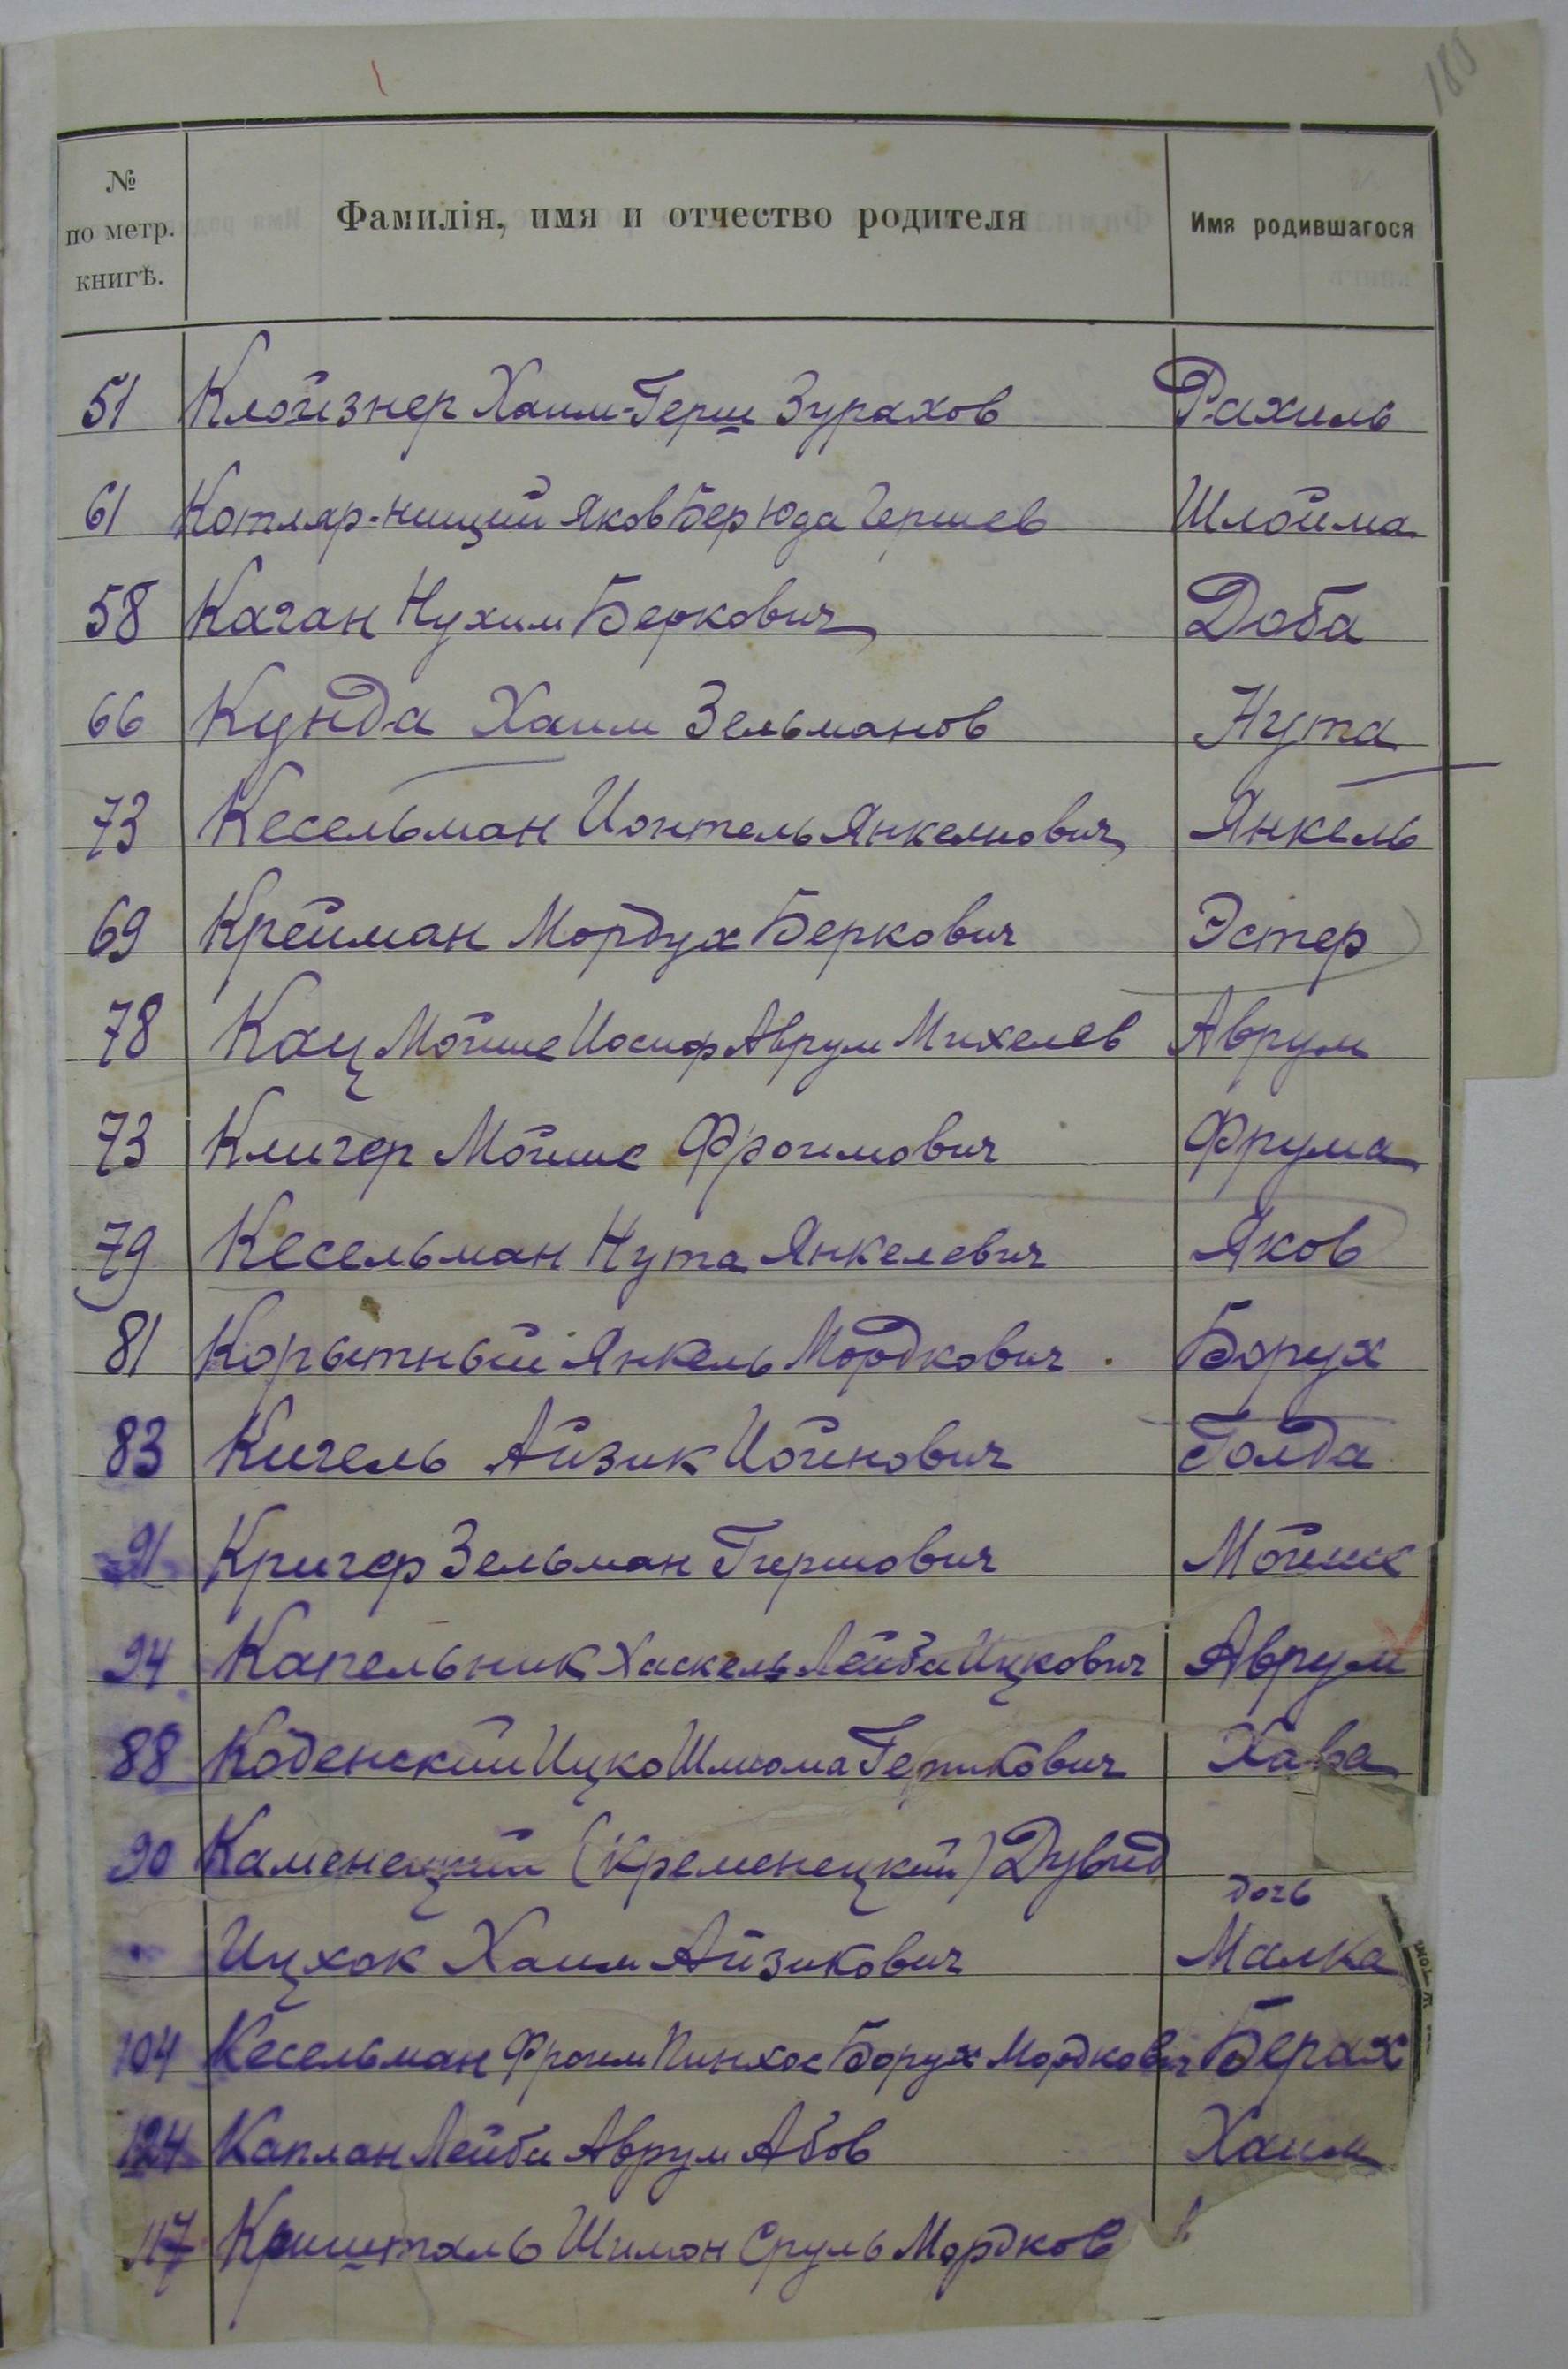 185
№ по метр. книгѣ.
Фамилія, имя и отчество родителя
Имя родившагося
51 Клойзнер Хаим-Герш Зурахов Рахиль
61 Котляр-нищий Яков Бер Юда Гершев Шлойма
58 Каган Нухим Беркович Доба
66 Кунда Хаим Зельманов Нута
73 Кесельман Ионтель Янкелиович Янкель
69 Крейман Мордух Беркович Эстер
78 Кац Мойше Иосиф Аврум Михелев Аврум
73 Клигер Мойше Фроимович Фрума
79 Кесельман Нута Янкелевич Яков
81 Корытный Янкель Мордкович Борух
83 Кигель Айзик Йойнович Голда
91 Кригер Зельман Гершович Мойше
94 Капельник Хаскель Лейба Ицкович Аврум
88 Коденский Ицко Шлиома Гершкович Хава
90 Каменецкий (Кременецкий) Дувид
дочь
Ицхок Хаим Айзикович Малка
104 Кесельман Фроим Пинхос Борух Мордкович Берах
124 Каплан Лейба Аврум Абов Хаим
117 Кришталь Шимон Сруль Мордков